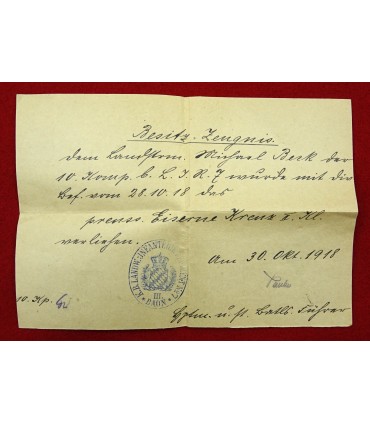 Besitz-Zeugnis.
Dem Landstrm. Michael Beck der
10. Komp. b. L. I. R. 7 wurde mit Div.
Bef. vom 28.10.18 das
preuss. Eiserne Kreuz II. Kl.
verliehen.
Am 30. Okt. 1918
K.B. LANDW. INFANTERIE
III.
BAON
10. Kp.
Hptm. u. st. Batls. Führer